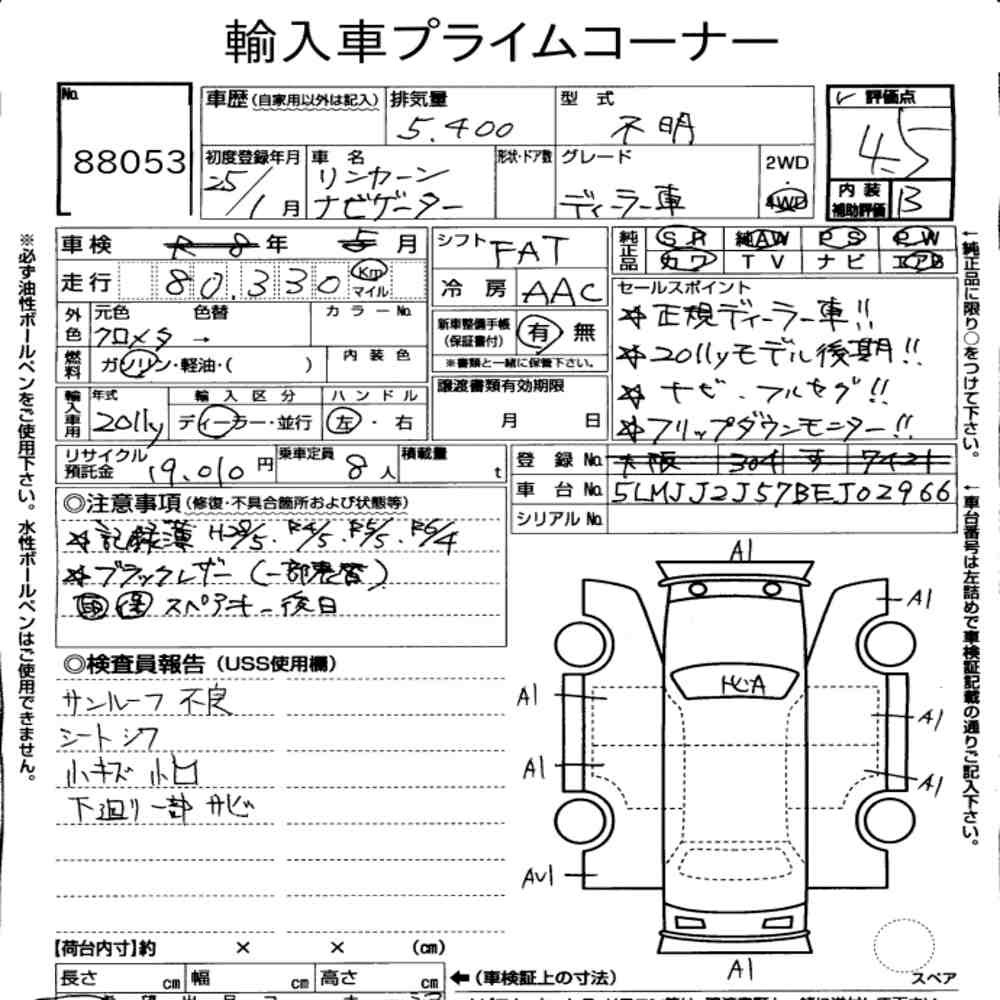 輸入車プライムコーナー
No.
88053
車歴(自家用以外は記入)
排気量
5.400
型式
不明
評価点
4.5
初度登録年月
25/1月
車名
リンカーン
ナビゲーター
形状・ドア数
グレード
ディーラー車
2WD
・
4WD
内装
補助評価
B
車検
R8年5月
シフト
FAT
純正品
SR
純AW
PS
PW
カワ
TV
ナビ
エアB
走行
80.330
Km
マイル
冷房
AAC
セールスポイント
☆正規ディーラー車!!
☆2011yモデル後期!!
☆ナビ・フルセグ!!
☆フリップダウンモニター!!
外色
元色
色替
カラーNo.
クロメタ →
新車整備手帳
(保証書付)
有 無
※書類と一緒に保管下さい。
燃料
ガソリン・軽油・( )
内装色
譲渡書類有効期限
月 日
輸入車用
年式
2011y
輸入区分
ディーラー・並行
ハンドル
左・右
リサイクル
預託金
19.010円
乗車定員
8人
積載量
t
登録No.
大阪 304 す 7421
車台No.
5LMJJ2J57BEJ02966
シリアルNo.
◎注意事項(修復・不具合箇所および状態等)
☆記録簿 H28/5. R4/5. R5/5. R6/4
☆ブラックレザー(一部表皆)
取 保 スペアキー後日
◎検査員報告(USS使用欄)
サンルーフ 不良
シートシワ
小キズ 小凹
下廻り一部サビ
A1
A1
A1
A1
A1
A1
AU1
A1
スペア
【荷台内寸】約 × × (cm)
長さ cm
幅 cm
高さ cm
←(車検証上の寸法)
※必ず油性ボールペンをご使用下さい。水性ボールペンはご使用できません。
←純正品に限り○をつけて下さい。
←車台番号は左詰めで車検証記載の通りご記入下さい。